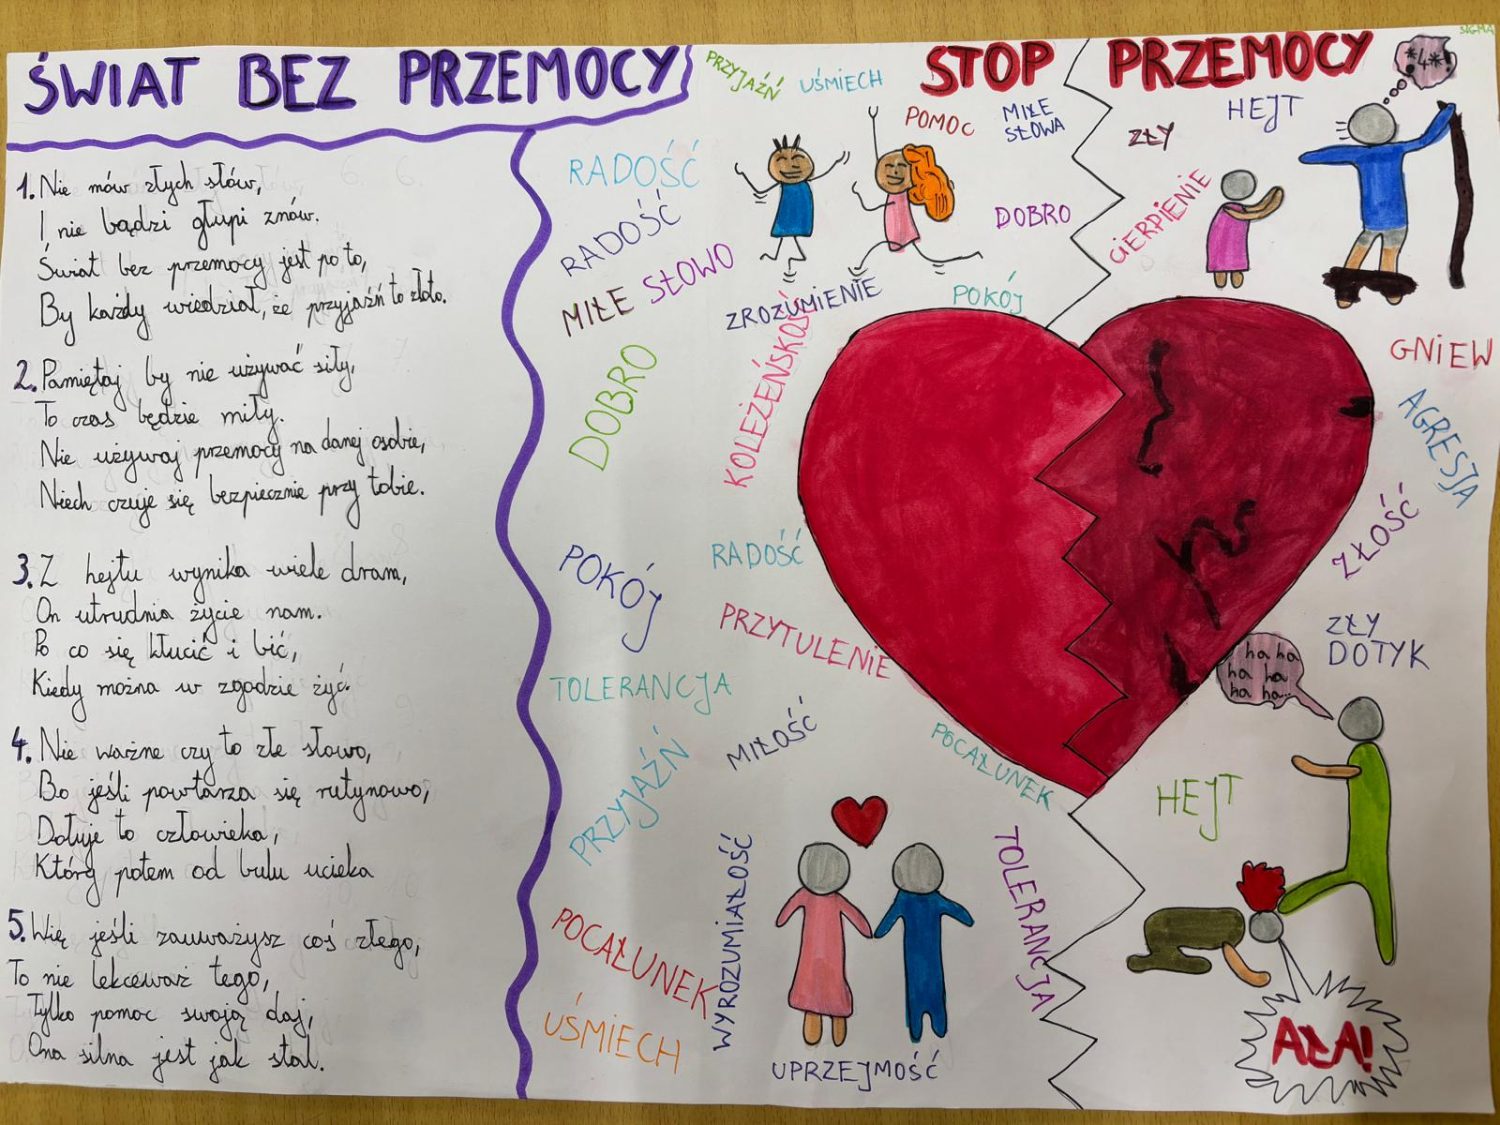 ŚWIAT BEZ PRZEMOCY
1. Nie mów złych słów,
I nie bądzi głupi znów.
Świat bez przemocy jest po to,
By każdy wiedział, że przyjaźń to złoto.
2. Pamiętaj by nie używać siły,
To czas będzie miły.
Nie używaj przemocy na danej osobie,
Niech czuje się bezpiecznie przy tobie.
3. Z hejtu wynika wiele dram,
On utrudnia życie nam.
Po co się kłucić i bić,
Kiedy można w zgodzie żyć.
4. Nie ważne czy to złe słowo,
Bo jeśli powtarza się rutynowo,
Dołuje to człowieka,
Który potem od bulu ucieka
5. Więj jeśli zauważysz coś złego,
To nie lekceważ tego,
Tylko pomoc swoją daj,
Ona silna jest jak stal.
STOP PRZEMOCY
SIGMA
PRZYJAŹŃ
UŚMIECH
POMOC
MIŁE
SŁOWA
RADOŚĆ
RADOŚĆ
MIŁE SŁOWO
DOBRO
ZROZUMIENIE
POKÓJ
DOBRO
KOLEŻEŃSKOŚĆ
POKÓJ
RADOŚĆ
PRZYTULENIE
TOLERANCJA
MIŁOŚĆ
PRZYJAŹŃ
POCAŁUNEK
POCAŁUNEK
WYROZUMIAŁOŚĆ
TOLERANCJA
UŚMIECH
UPRZEJMOŚĆ
*4*!
HEJT
ZŁY
CIERPIENIE
GNIEW
AGRESJA
ZŁOŚĆ
ZŁY
DOTYK
ha ha
ha ha
ha ha...
HEJT
AŁA!